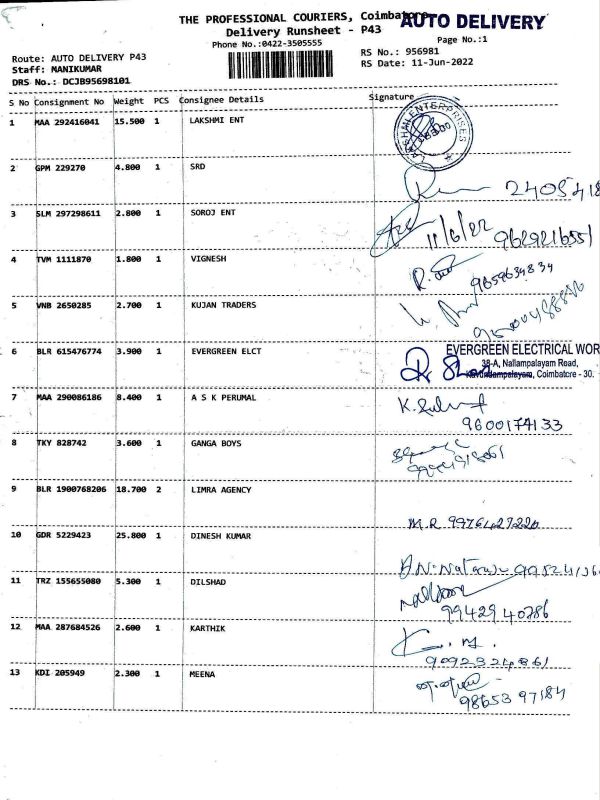 THE PROFESSIONAL COURIERS, Coimbatore
AUTO DELIVERY
Delivery Runsheet - P43
Page No.:1
Phone No.:0422-3505555
Route: AUTO DELIVERY P43
RS No.: 956981
Staff: MANIKUMAR
RS Date: 11-Jun-2022
DRS No.: DCJB95698101
S No Consignment No Weight PCS Consignee Details Signature
1 MAA 292416041 15.500 1 LAKSHMI ENT
LAKSHMI ENTERPRISES
2 GPM 229270 4.800 1 SRD
3 SLM 297298611 2.800 1 SOROJ ENT
11/6/22 9629216551
4 TVM 1111870 1.800 1 VIGNESH
9659634834
5 VNB 2650285 2.700 1 KUJAN TRADERS
6 BLR 615476774 3.900 1 EVERGREEN ELCT
EVERGREEN ELECTRICAL WOR
38-A, Nallampalayam Road,
Kavundampalayam, Coimbatore - 30.
7 MAA 290086186 8.400 1 A S K PERUMAL
9600174133
8 TKY 828742 3.600 1 GANGA BOYS
9 BLR 1900768206 18.700 2 LIMRA AGENCY
M.R 9976427220
10 GDR 5229423 25.800 1 DINESH KUMAR
11 TRZ 155655080 5.300 1 DILSHAD
99429 40786
12 MAA 287684526 2.600 1 KARTHIK
9092324861
13 KDI 205949 2.300 1 MEENA
98653 97184